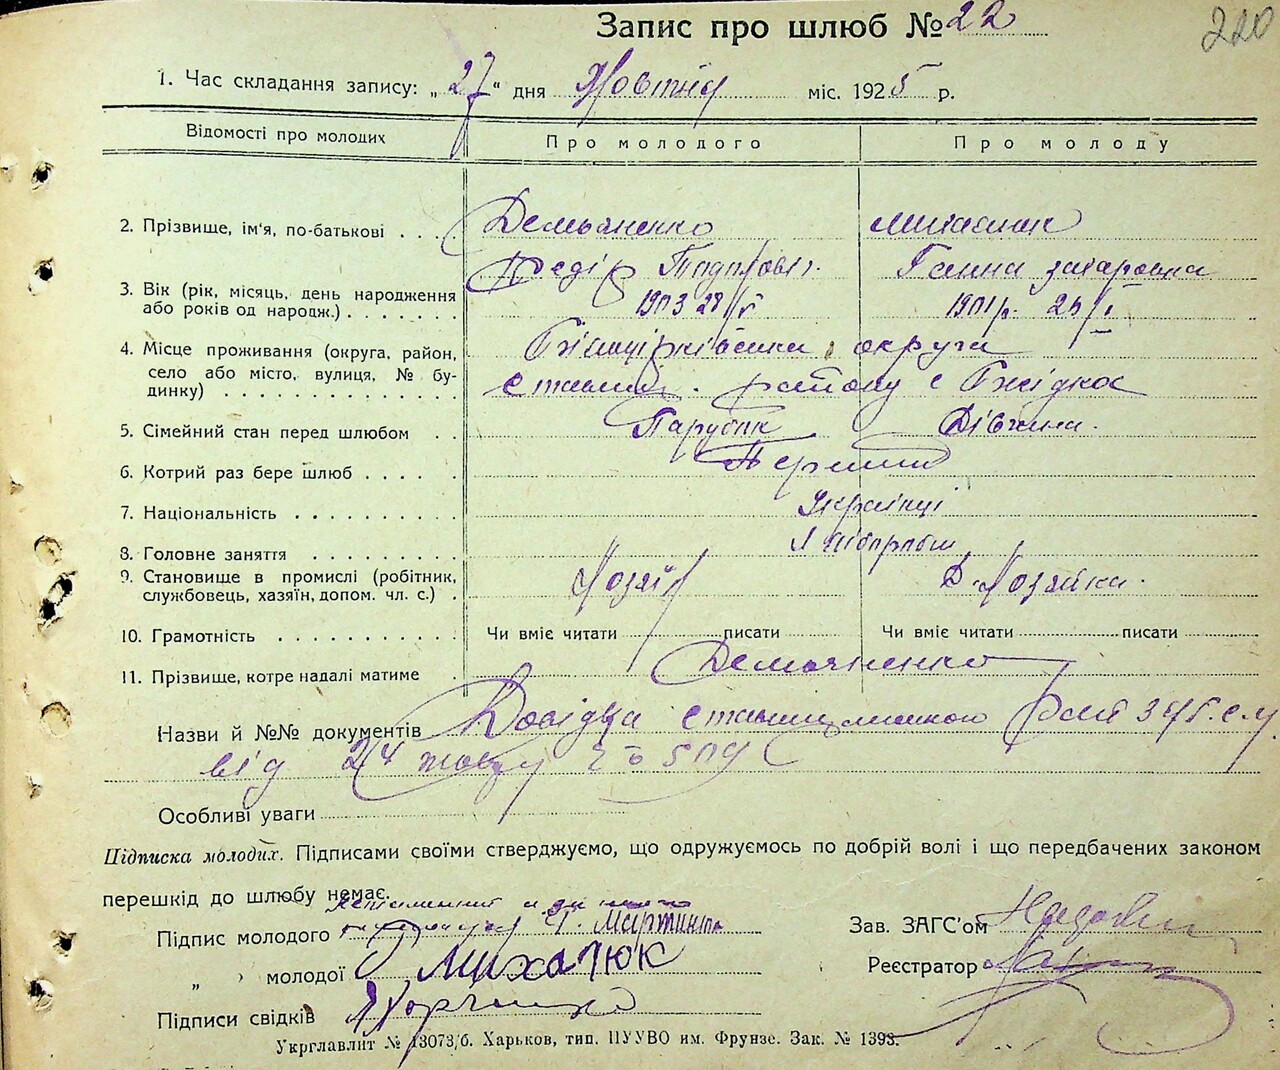 220
Запис про шлюб № 22
1. Час складання запису: „27“ дня Жовтня міс. 1925 р.
Відомості про молодих
Про молодого
Про молоду
2. Прізвище, ім'я, по-батькові . . . .
Демьяненко
Михалюк
Федір Тодорович.
Ганна захаровна
3. Вік (рік, місяць, день народження або років од народж.) . . . . . . .
1903 28/V
1901 р. 25/I
4. Місце проживання (округа, район, село або місто, вулиця, № будинку) . . . . . . . . . . . . .
Білоцірківська округа
Ставищ. району с Бжідкос
5. Сімейний стан перед шлюбом . .
Парубок
Дівчина.
6. Котрий раз бере шлюб . . . . .
Перший
7. Національність . . . . . . . . .
Українці
8. Головне заняття . . . . . . . .
Хліборобш
9. Становище в промислі (робітник, службовець, хазяїн, допом. чл. с.) .
Хозяїн
Д. Хозяйка.
10. Грамотність . . . . . . . . . . .
Чи вміє читати писати
Чи вміє читати писати
11. Прізвище, котре надалі матиме .
Демьяненко
Назви й №№ документів Довідка Ставищ
від 24 жовт
Особливі уваги
Підписка молодих. Підписами своїми стверджуємо, що одружуємось по добрій волі і що передбачених законом
перешкід до шлюбу немає.
Підпис молодого Мартин
„ молодої Михалюк
Підписи свідків
Зав. ЗАГС'ом
Реєстратор
Укрглавлит № 13073/б. Харьков, тип. ПУУВО им. Фрунзе. Зак. № 1393.